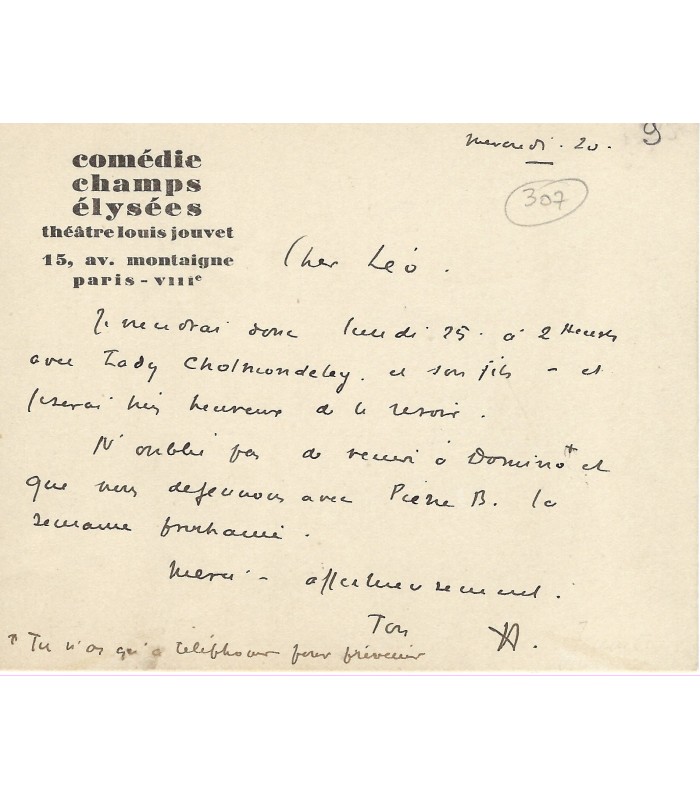 mercredi . 20 .
9
307
comédie
champs
élysées
théâtre louis jouvet
15, av. montaigne
paris - VIIIe
Cher Léo .
Je viendrai donc lundi 25 . à 2 heures
avec Lady Cholmondeley . et son fils - et
serai très heureux de te revoir .
N'oublie pas de venir à Domino + et
que nous dejeunons avec Pierre B. la
semaine prochaine .
Merci - affectueusement .
Ton
+ Tu n'as qu'à téléphoner pour prévenir